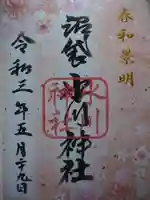 春和景明
沼袋氷川神社
氷川神社
令和三年五月二十九日